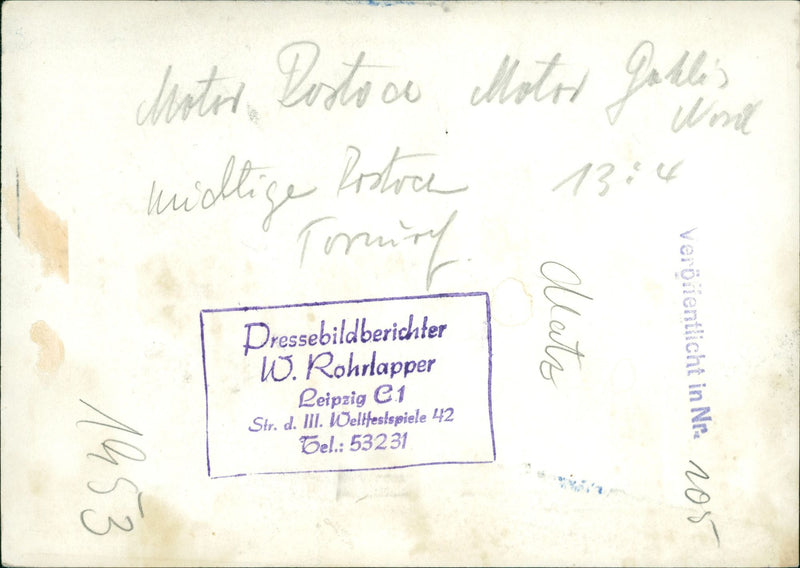 Motor Rostock Motor Gohlis
Nord
Rostock 13:4
Torwurf
Matz
veröffentlicht in Nr. 105
Pressebildberichter
W. Rohrlapper
Leipzig C.1
Str. d. III. Weltfestspiele 42
Tel.: 53231
1953